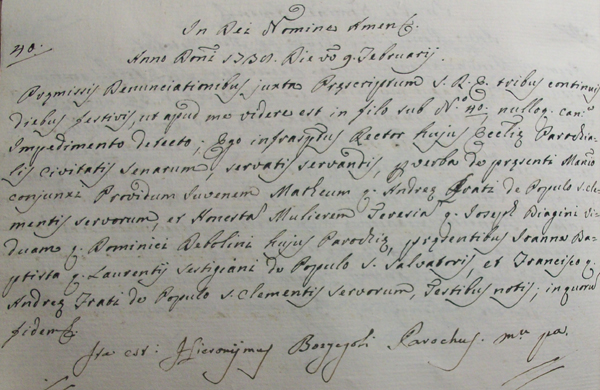 In Dei Nomine Amen &.
40. Anno Dni 1730. Die vo 9. Februarij.
Premissis Denunciationibus juxta Præscriptum S. R. E. tribus continuis
Diebus festivis, ut apud me videre est in filo sub N.o 40; nulloq. can.o
Impedimento detecto; Ego infrascptus Rector hujus Eccliæ Parochia-
lis Civitatis Senarum, servatis servandis, p verba de præsenti Mãnio
conjunxi Providum Juvenem Matheum q. Andreæ Frati de Populo S. Cle-
mentis servorum, et Honestã Mulierem Teresiã q. Joseph Biagini Vi-
duam q. Dominici Bebolini hujus Parochiæ, præsentibus Joanne Ba-
ptista q. Laurentij Sestigiani de Populo S. Salvatoris, et Francisco q.
Andreæ Frati de Populo S. Clementis servorum, Testibus notis; in quorũ
fidem &.
Ita est: Hieronijmus Parochus. mu pa.